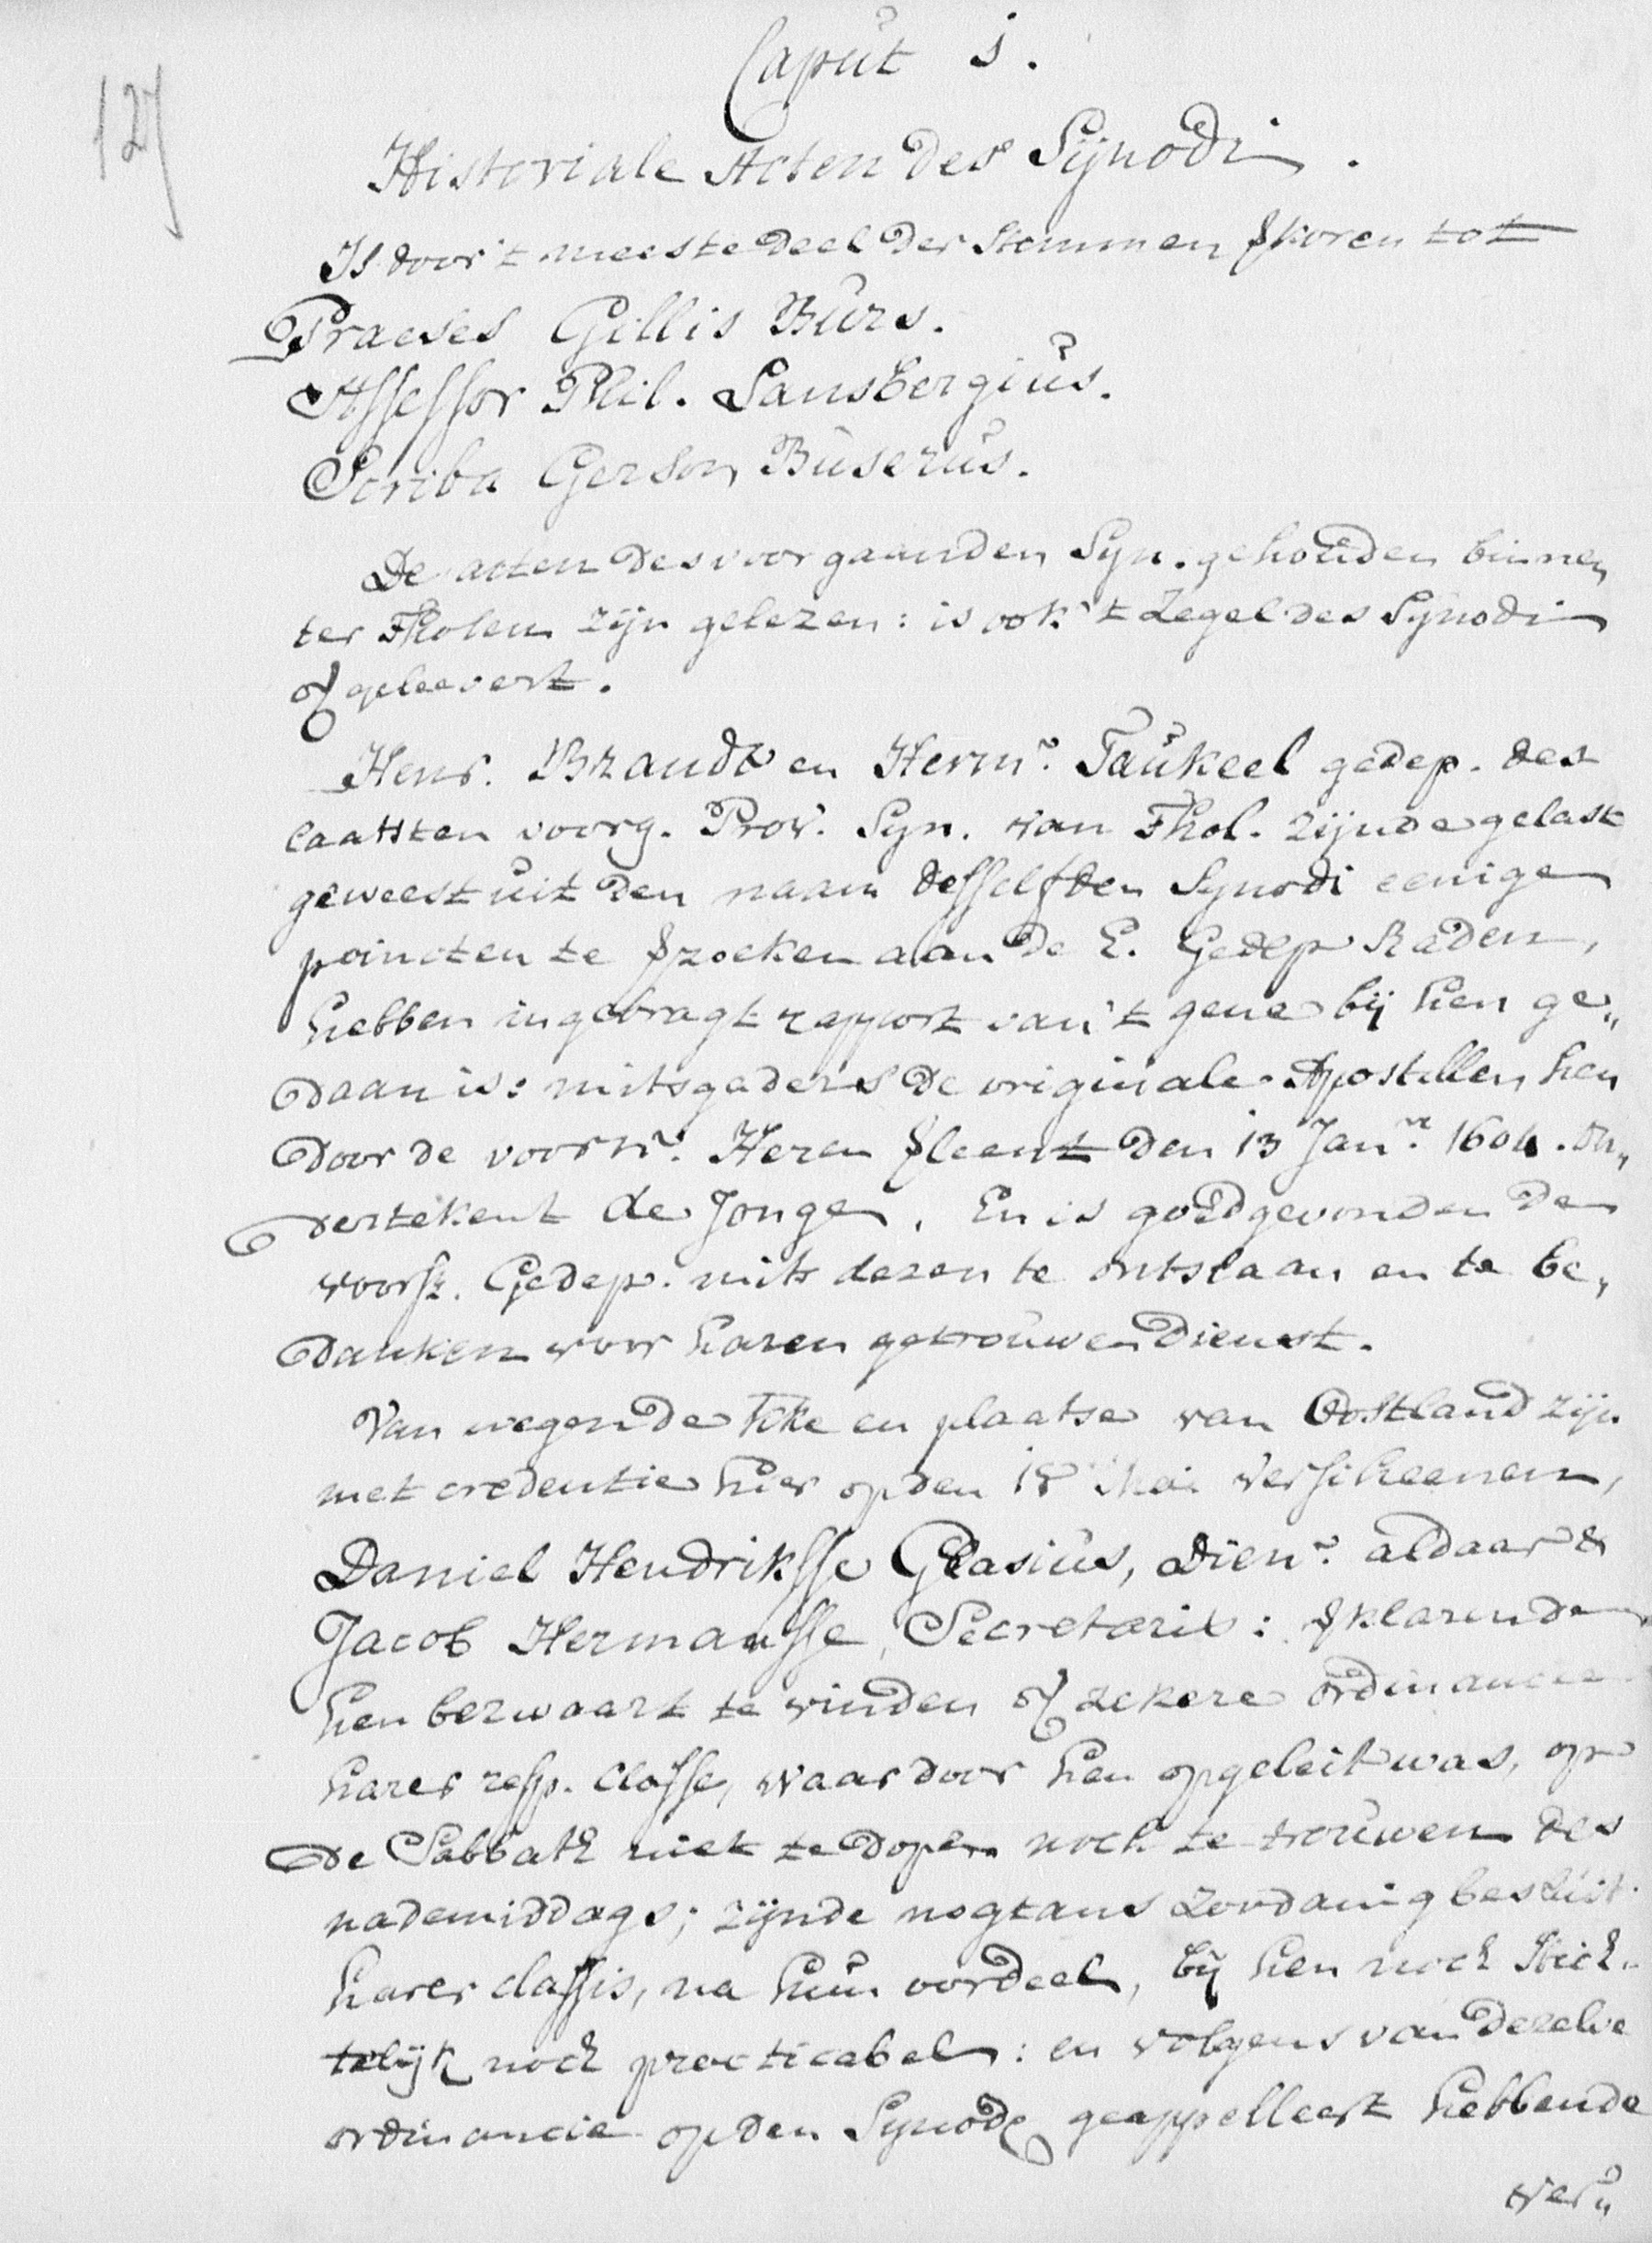 127
Caput 1.
Historiale Acten des Synodi.
Is door 't meeste deel der Stemmen gkoren tot
Praeses Gillis Burs.
Assessor Phil. Lansbergius.
Scriba Gerson Buserus.
De acten des voorgaanden Syn. gehouden binnen
ter Tholen zijn gelezen: is ook 't Zegel des Synodi
ofgeleevert.
Henr. Brandt en Hermn. Faukeel gedep. des
laatsten voorg. Prov. Syn. van Thol. zijnde gelast
geweest uit den naam desselfden Synodi eenige
poincten te vrzoeken aan de E. Gedep Raden,
hebben ingebragt rapport van 't gene bij hen ge„
daan is: mitsgaders de originale Apostillen hen
door de voorn. Heren vrleent den 13 Janr. 1604. On„
dertekent de Jonge. En is goedgevonden de
voorsz. Gedep. mits dezen te ontslaan en te be„
danken voor haren getrouwen dienst.
Van wegen de Kke en plaatse van Oostland zijn
met credentie hier op den 18 Mai verscheenen,
Daniel Hendriksse Glasius, Dienr. aldaar &
Jacob Hermansse, Secretaris: vrklarende
hen bezwaart te vinden of zekere ordinancie
harer resp. Classe, waardoor hen opgeleit was, op
de Sabbath niet te dopen noch te trouwen des
nademiddags; zijnde nogtans zoodanig besluit
harer classis, na hun oordeel, bij hen noch stich„
telijk noch practicabel: en volgens van dezelve
ordinancie op den Synode geappelleert hebbende
ver„